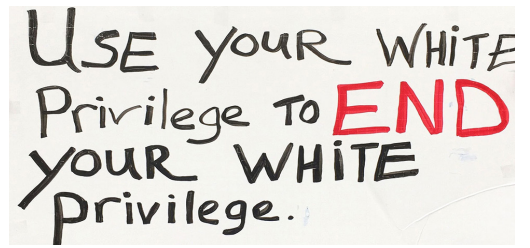 USE YOUR WHITE
Privilege TO END
YOUR WHITE
Privilege.